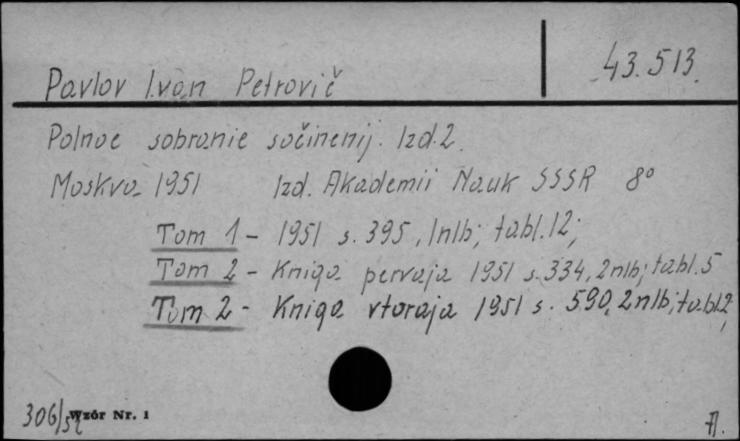 43.513
Pavlov Ivan Petrovič
Polnoe sobranie sočinenij. Izd.2.
Moskva 1951 Izd. Akademii Nauk SSSR 8°
Tom 1 - 1951 s. 395, 1nlb; tabl.12;
Tom 2 - Kniga pervaja 1951 s. 334, 2nlb; tabl.5
Tom 2 - Kniga vtoraja 1951 s. 590, 2nlb; tabl.2;
306/52 Wzór Nr. 1
A.